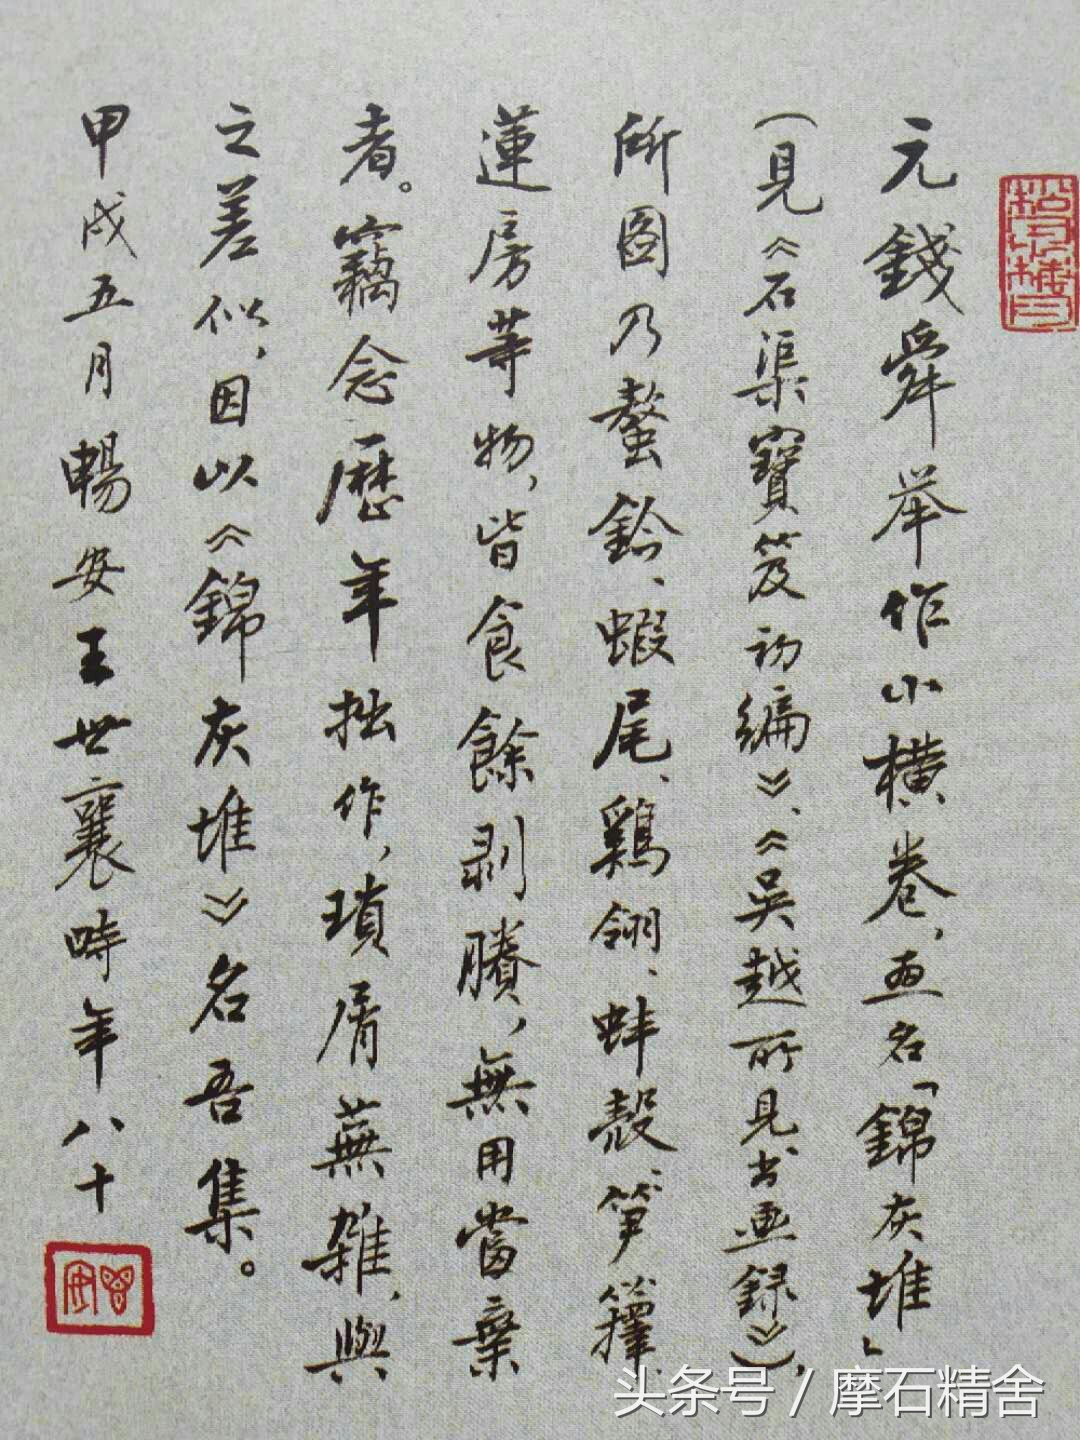 元錢舜举作小横卷，画名「錦灰堆」
（見《石渠寶笈初編》、《吳越所見书画録》），
所圖乃螯鈐、蝦尾、鷄翎、蚌殼、笋籜、
蓮房等物，皆食餘剥賸，無用當棄
者。竊念歷年拙作，瑣屑蕪雜，與
之差似，因以《錦灰堆》名吾集。
甲戌五月暢安王世襄時年八十
头条号 / 摩石精舍